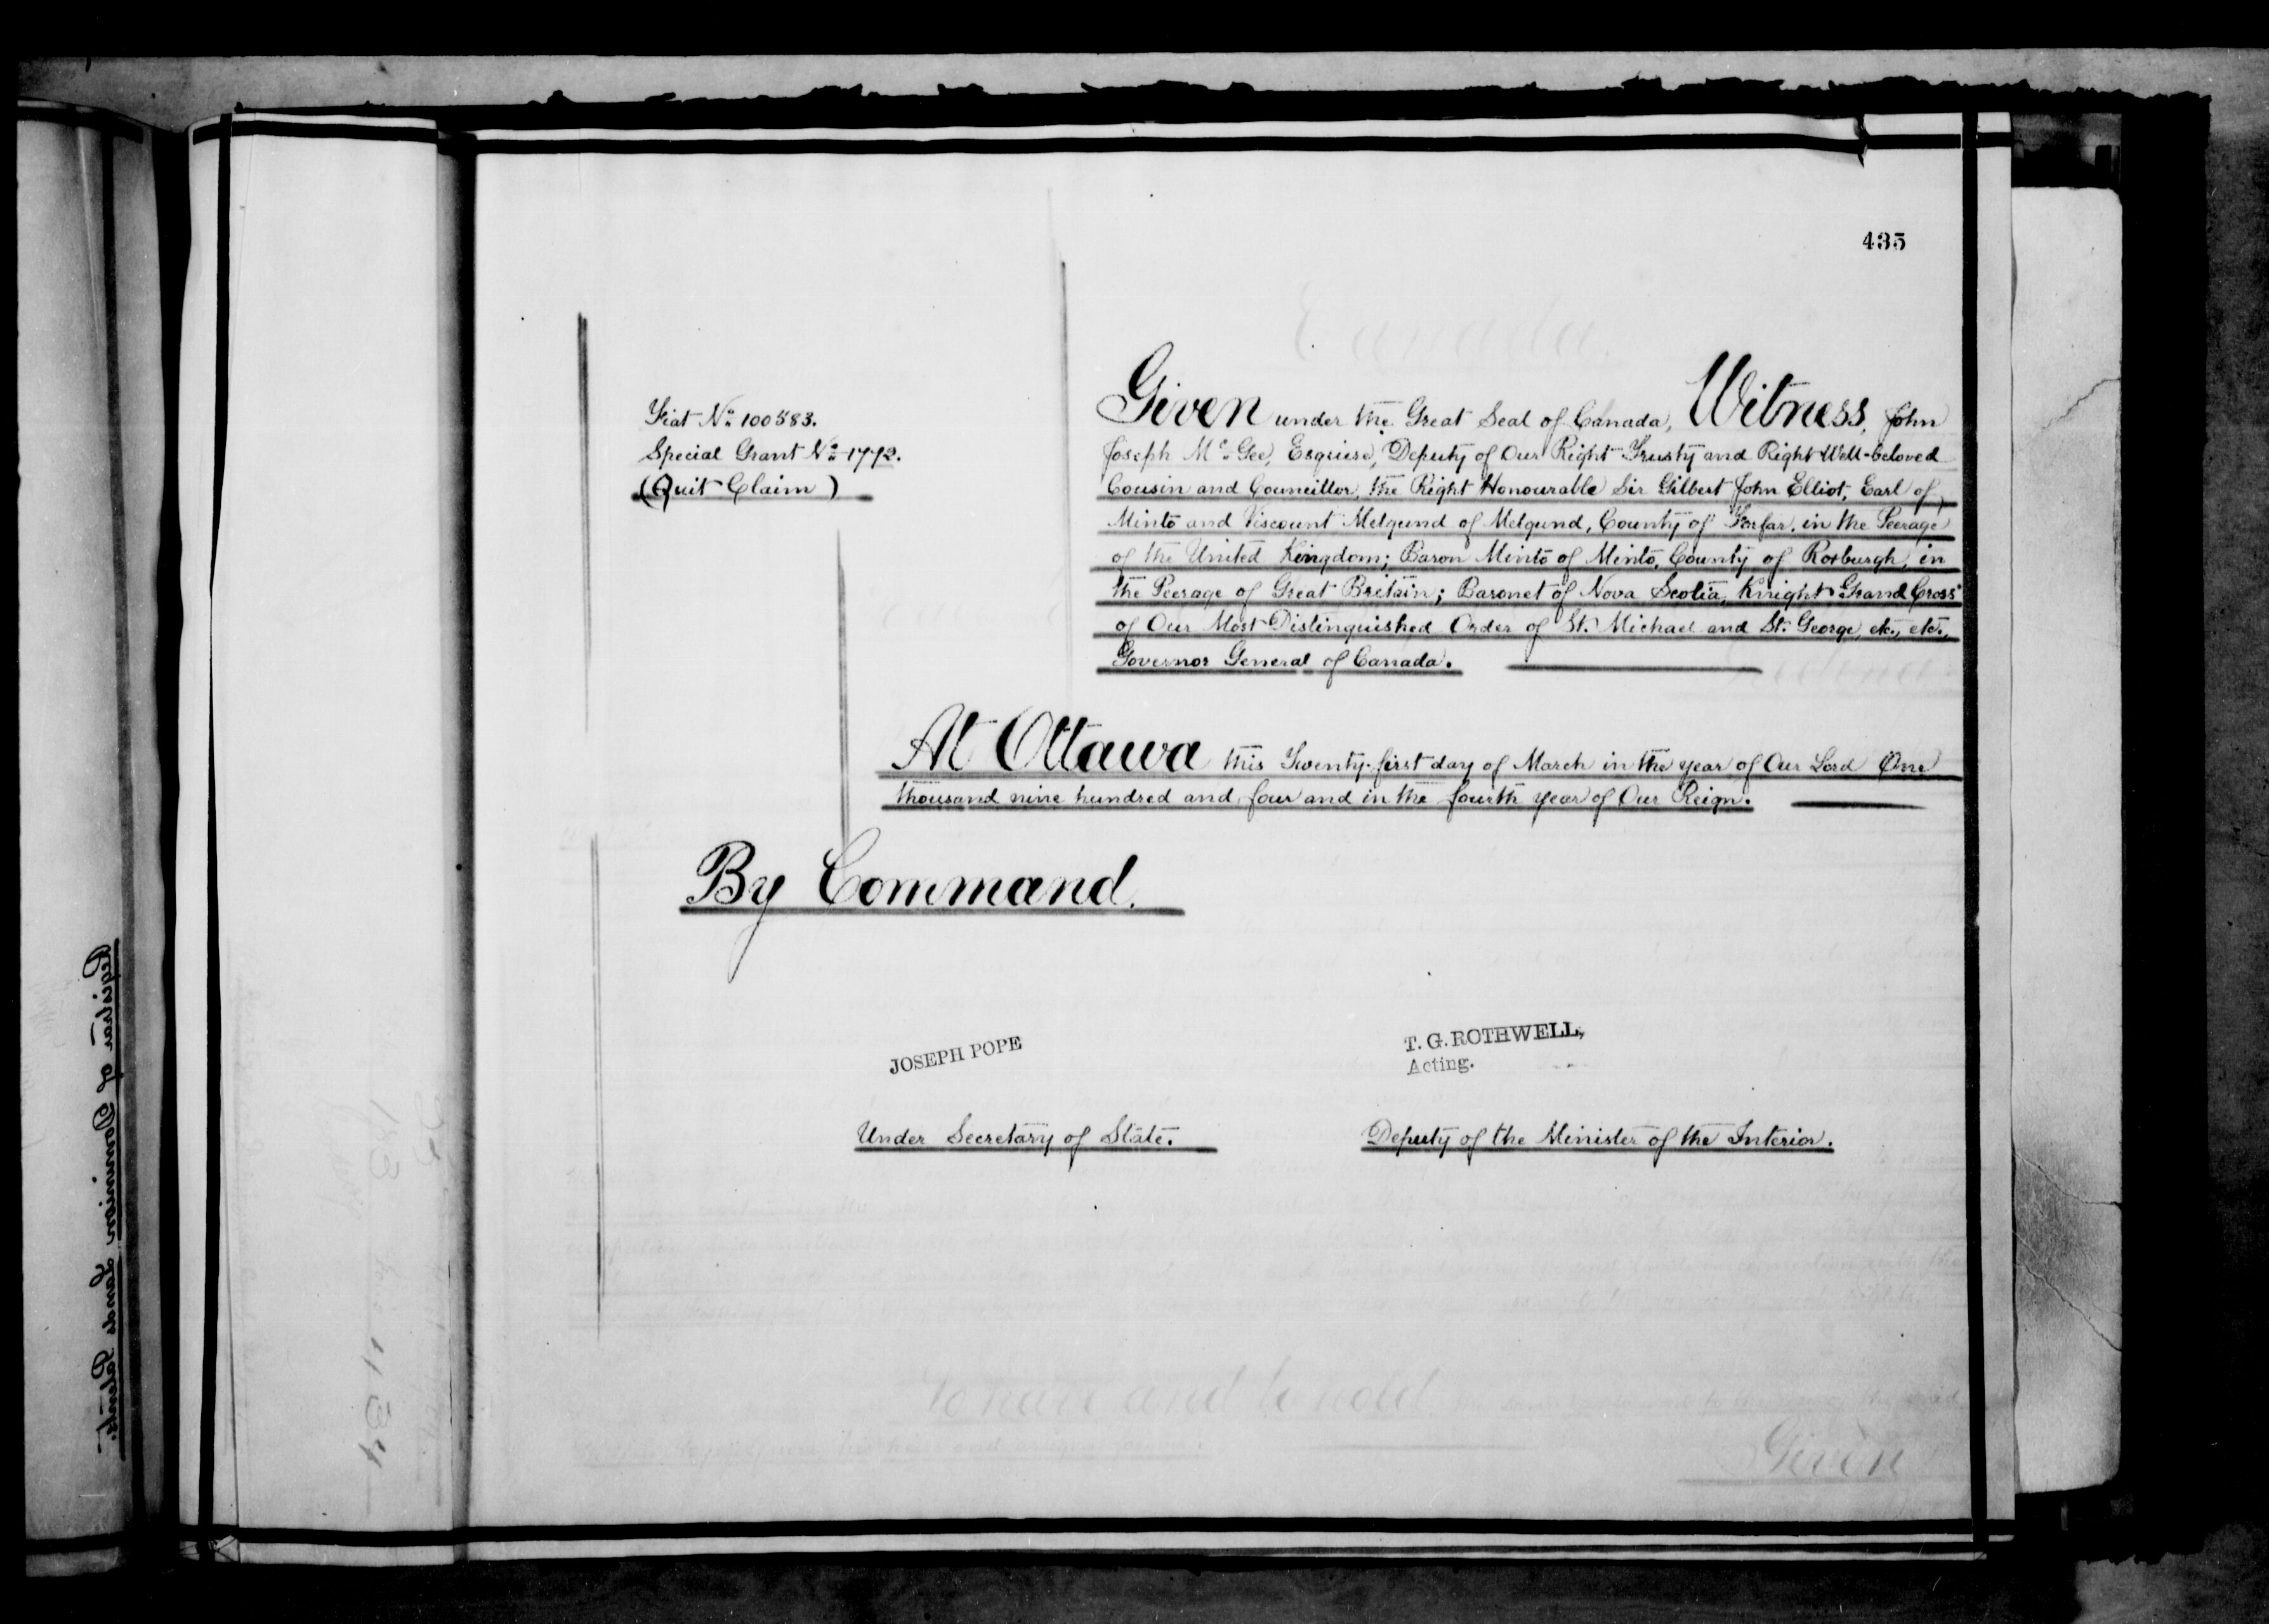 435
Fiat No. 100583.
Special Grant No. 1772.
(Quit Claim)
Given under the Great Seal of Canada, Witness, John
Joseph McGee, Esquire, Deputy of Our Right Trusty and Right Well-beloved
Cousin and Councillor, the Right Honourable Sir Gilbert John Elliot, Earl of
Minto and Viscount Melgund of Melgund, County of Forfar, in the Peerage
of the United Kingdom; Baron Minto of Minto, County of Roxburgh, in
the Peerage of Great Britain; Baronet of Nova Scotia, Knight Grand Cross
of Our Most Distinguished Order of St. Michael and St. George, etc., etc.,
Governor General of Canada.
At Ottawa this Twenty-first day of March in the year of Our Lord One
thousand nine hundred and four and in the fourth year of Our Reign.
By Command.
JOSEPH POPE
T. G. ROTHWELL,
Acting.
Under Secretary of State.
Deputy of the Minister of the Interior.
Registrar of Dominion Lands Patents.
To have and to hold
Given